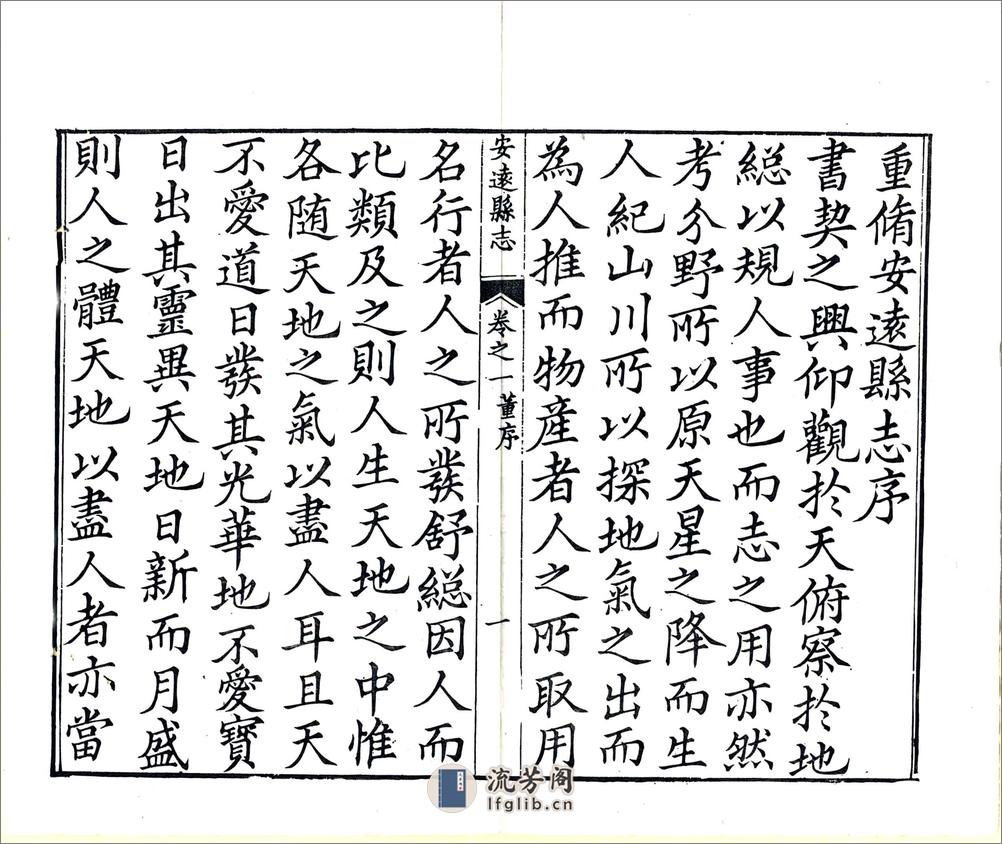 重脩安遠縣志序
書契之興仰觀於天俯察於地
緫以規人事也而志之用亦然
考分野所以原天星之降而生
人紀山川所以探地氣之出而
為人推而物產者人之所取用
安遠縣志 卷之一 董序 一
名行者人之所發舒緫因人而
比類及之則人生天地之中惟
各随天地之氣以盡人耳且天
不愛道日發其光華地不愛寶
日出其靈異天地日新而月盛
則人之體天地以盡人者亦當
流芳阁
lfglib.cn